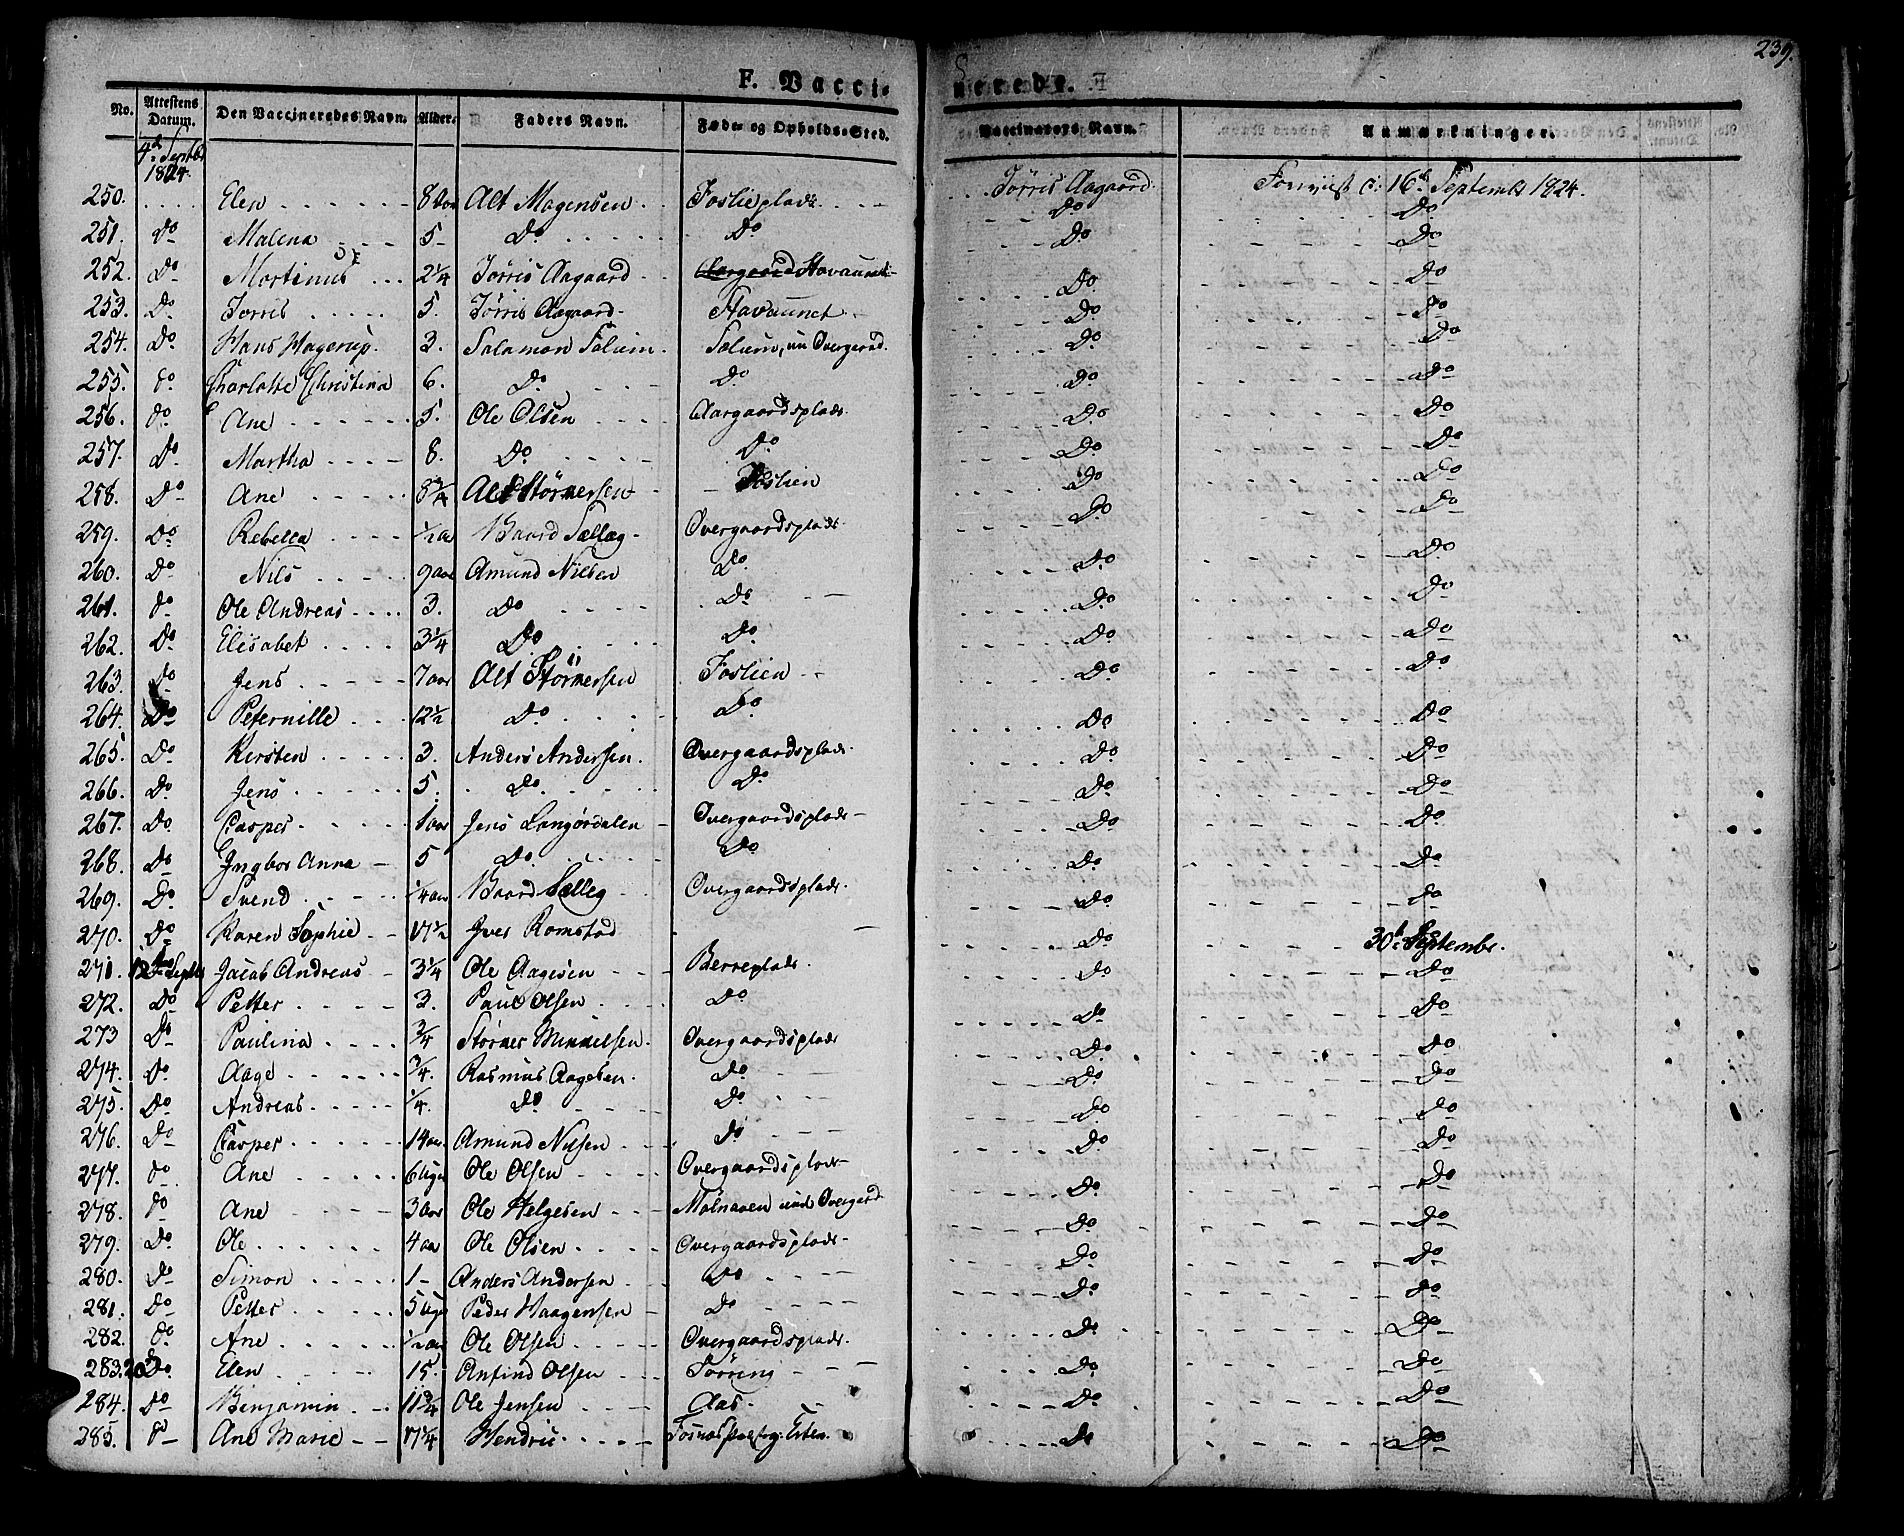 239.
F. Vacci-nerede.
No. Attestens Datum. Den Vaccineredes Navn. Alder. Faders Navn. Føde- og Opholds-Sted. Vaccinateurs Navn. Anmærkninger.
4d Septbr 1824.
250. .... Elen 8 Aar Alt Mogensen Foslieplads Tørris Aagaard Forrvist d: 16d September 1824.
251. Do Malena 5 Do Do Do Do
252. Do Mortinus 2 1/4 Tørris Aagaard Havaunet Do Do
253. Do Torris 5. Tørris Aagaard Havaunet Do Do
254. Do Hans Hagerup 3. Salamon Solum Solum, un Overgard. Do Do
255. do Charlotte Christina 6. Do Do Do Do
256. do Ane 5. Ole Olsen Aargaardsplads Do Do
257. Do Martha 8. Do Do Do Do
258. Do Ane 8 3/4 Alt Størkersen Foslien Do Do
259. Do Rebekka 1/2 aar Baard Sællæg Overgaardsplads Do Do
260. Do Nils 9 aar Amund Nielsen Do Do Do
261. do Ole Andreas 3. Do Do Do Do
262. Do Elisabet 3 1/4 Do Do Do Do
263. Do Jens 7 aar Alt Størkersen Foslien Do Do
264. Do Peternille 12 1/2 Do Do Do Do
265. Do Kirsten 3. Anders Andersen Overgaardsplads Do Do
266. Do Jens 5. Do Do Do Do
267. Do Casper 1 aar Jens Langørdalen Overgaardsplads Do Do
268. Do Ingbor Anna 5 Do Do Do Do
269. Do Svend 1/4 aar Baard Sælleg Overgaardsplads Do Do
270. Do Karen Sophie 17 1/2 Iver Romstad Do 30d Septembr.
271. 12 Septbr Jacob Andreas 3 1/4 Ole Aagesen Berreplads Do Do
272. Do Petter 3. Paul Olsen Do Do Do
273 Do Paulina 3/4 Størker Mikkelsen Overgaardsplads Do Do
274. Do Aage 3/4. Rasmus Aagesen Do Do Do
275. Do Andreas 1/4. Do Do Do Do
276. Do Casper 14 aar Amund Nilsen Do Do Do
277. do Ane 6 Uger Ole Olsen Overgaardsplads Do Do
278. do Ane 3 Aar Ole Helgesen Molnaven und Overgard Do Do
279. Do Ole 4 aar Ole Olsen Overgaardsplads Do Do
280. Do Simon 1 Anders Andersen Do Do Do
281. Do Petter 5 Uger Peder Haagensen Do Do Do
282. do Ane 1/2 aar Ole Olsen Overgaardsplads Do Do
283. Do Elen 15. Anfind Olsen Tørring Do Do
284. Do Benjamin 11 3/4 Ole Jensen Aas. Do Do
285. do Ane Marie 17 1/4 Hendric Do Do